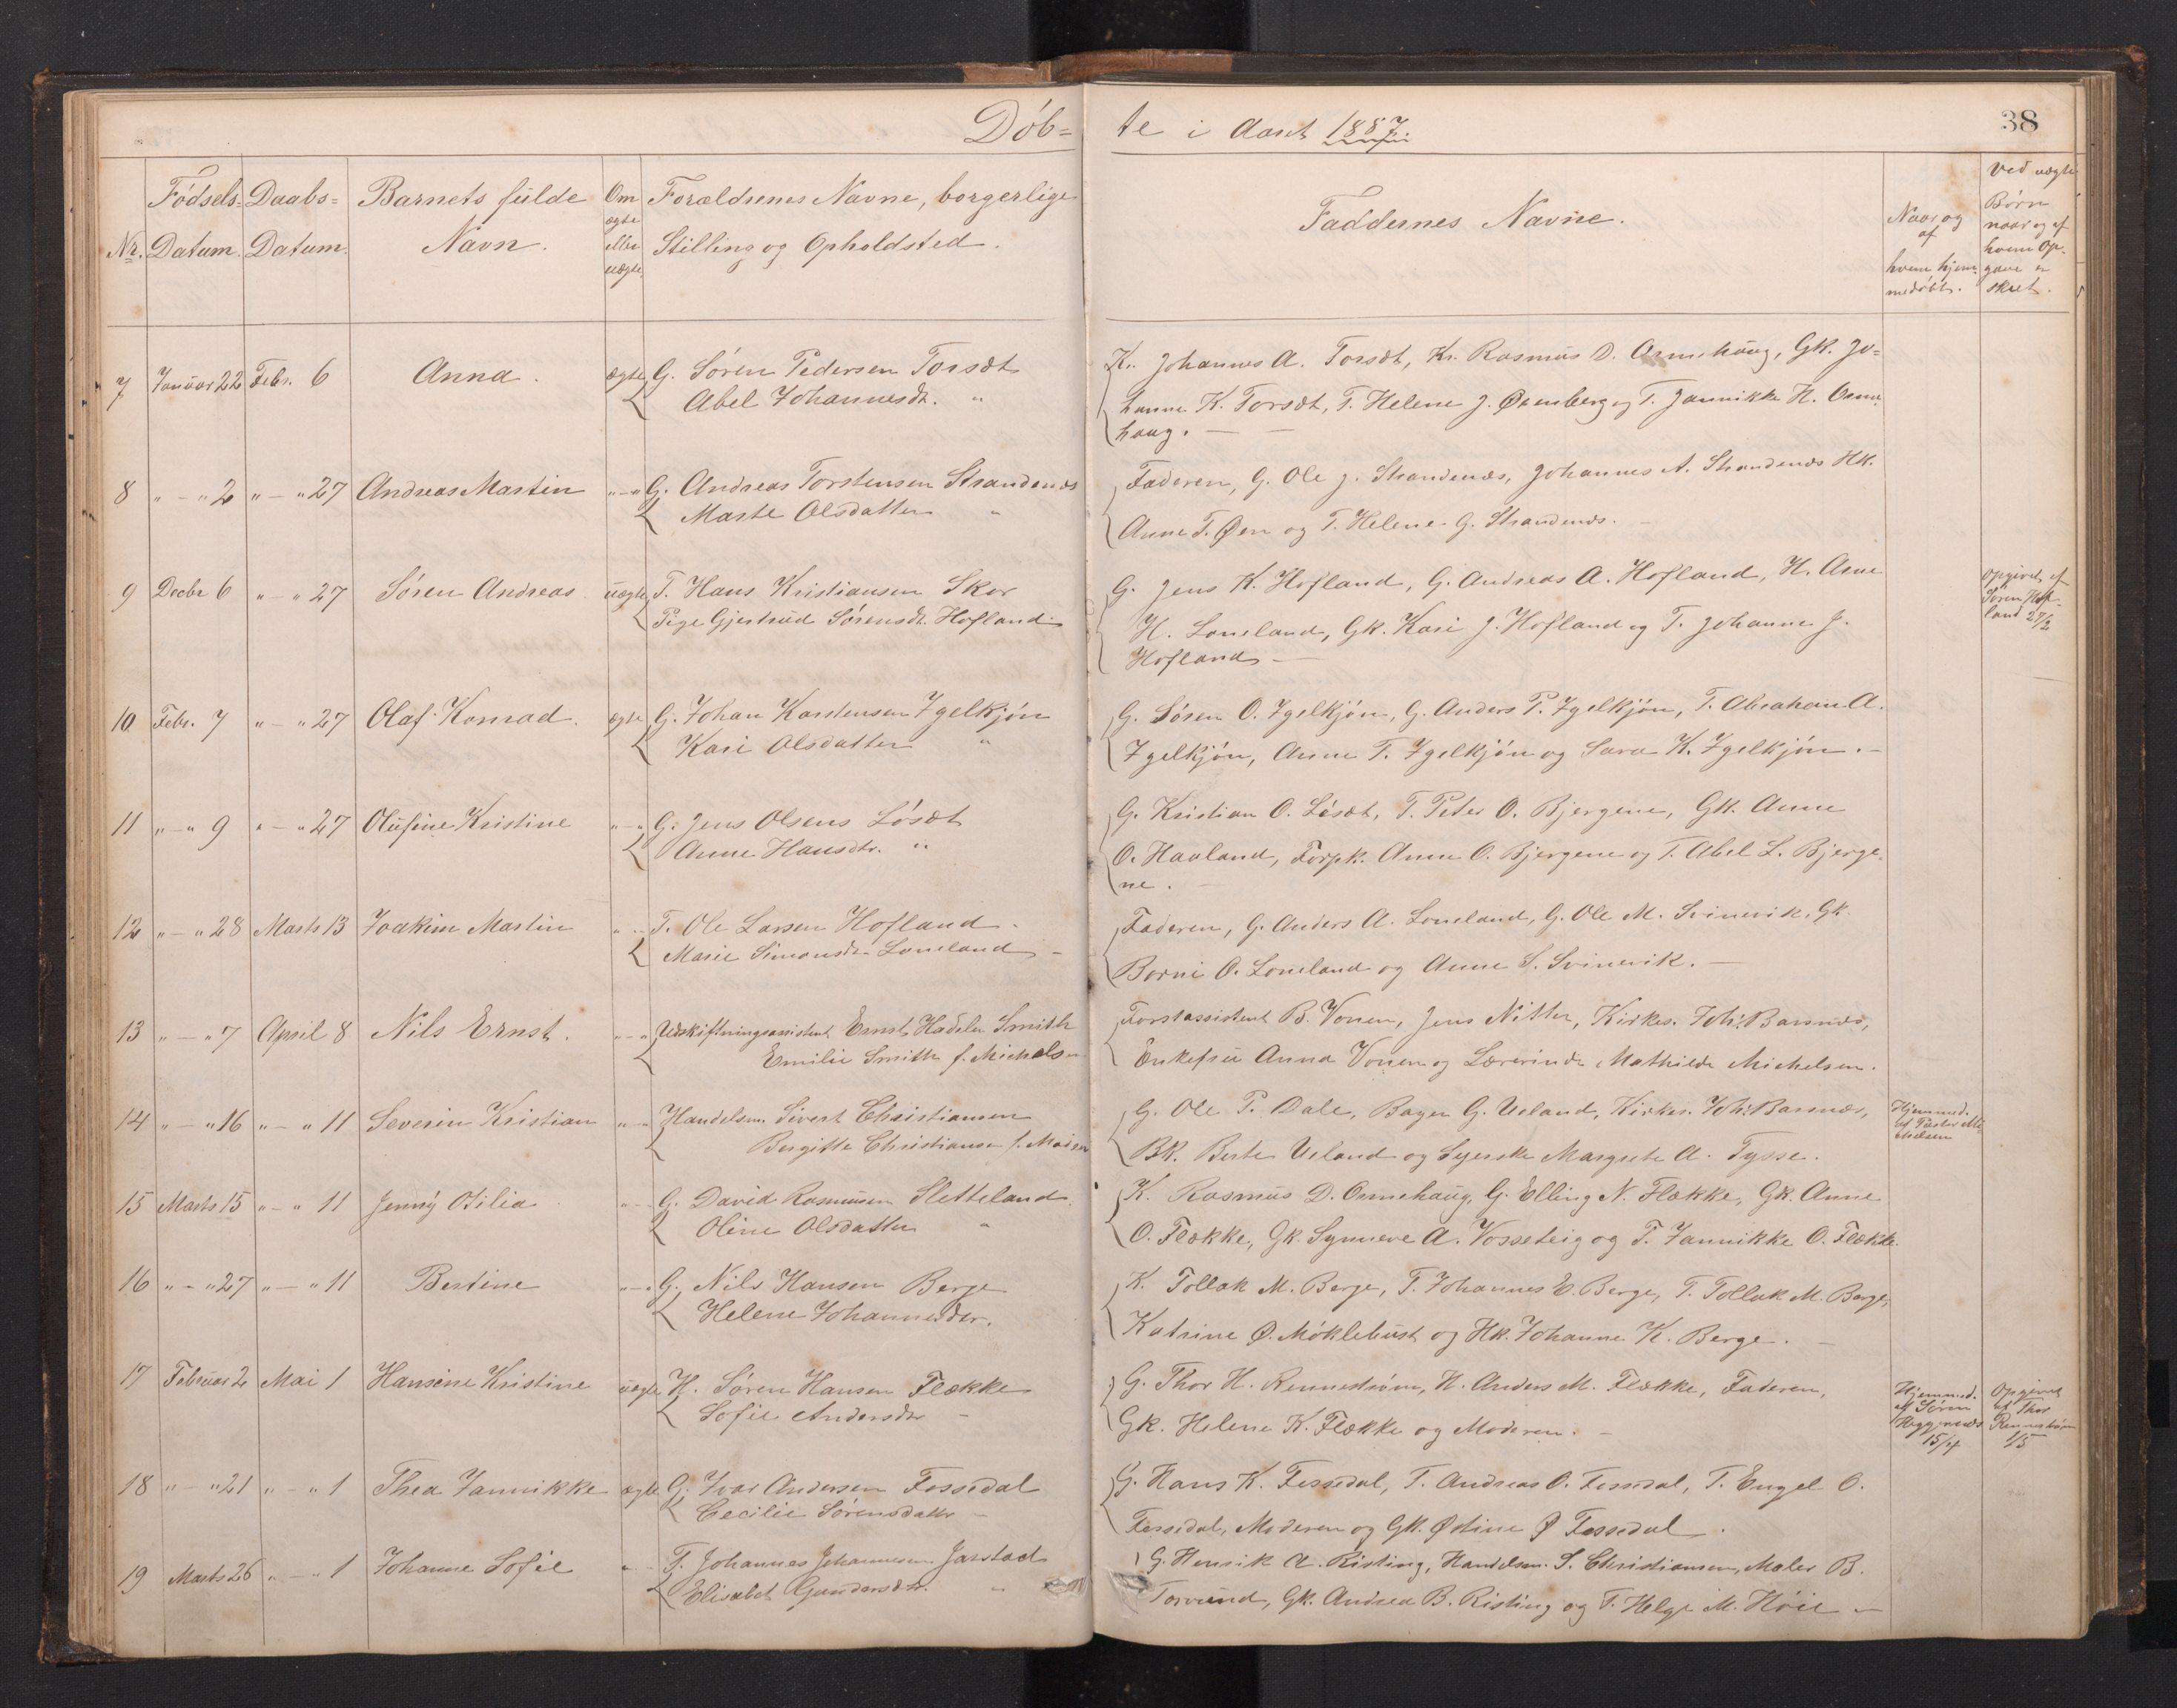 Döb= te i Aaret 1887.
38
Nr. Fødsels= Datum. Daabs= Datum. Barnets fulde Navn. Om ægte eller uægte Forældrenes Navne, borgerlige Stilling og Opholdsted. Faddernes Navne. Naar og af hvem hjemmedøbt. Ved uægte Børn naar og af hvem Opgave er skeet.
7 Januar 22 Febr. 6 Anna. ægte G. Søren Pedersen Torsæt
Abel Johannesdt. "
K. Johannes A. Torsæt, K. Rasmus D. Ormehaug, Gk. Jo=
hanne K. Torsæt, T. Helene J. Øxenberg og T. Jannikke H. Orme
haug. —
8 " - " 2 " - " 27 Andreas Martin " - " G. Andreas Torstensen Strandenæs
Marte Olsdatter "
Faderen, G. Ole J. Strandenæs, Johannes A. Strandenæs Hk.
Anne T. Øen og T. Helene G. Strandenæs. —
9 Decbr 6 " - " 27 Søren Andreas uægte T. Hans Kristiansen Skor
Pige Gjertrud Sørensdt. Hofland
G. Jens K. Hofland, G. Andreas A. Hofland, H. Arne
H. Loneland, Gk. Kari J. Hofland og T. Johanne J.
Hofland —
Opgivet af
Søren Hof-
land 27/2
10 Febr. 7 " - " 27 Olaf Konrad. ægte G. Johan Karstensen Igelkjøn
Kari Olsdatter "
G. Søren O. Igelkjøn, G. Anders P. Igelkjøn, T. Abraham A.
Igelkjøn, Anne T. Igelkjøn og Sara K. Igelkjøn. —
11 " - " 9 " - " 27 Olufine Kristine " - " G. Jens Olsens Løsæt
Anne Hansdtr. "
G. Kristian O. Løsæt, T. Peter O. Bjergene, Gk. Anne
O. Havland, Forpk. Anne O. Bjergene og T. Abel L. Bjerge-
ne. —
12 " - " 28 Marts 13 Joakim Martin " - " T. Ole Larsen Hofland
Marie Simonsdt. Loneland —
Faderen, G. Anders A. Loneland, G. Ole M. Svinevik, Gk.
Borni O. Loneland og Anne S. Svinevik. —
13 " - " 7 April 8 Nils Ernst. " - " Udskiftningsassistent Ernst Smith
Emilie Smith f. Michelsen
Forstassistent B. Vonen, Jens Nitter, Kirkes. Joh: Barsnæs,
Enkefru Anna Vonen og Lærerinde Mathilde Michelsen.
14 " - " 16 " - " 11 Severin Kristian " - " Handelsm. Sivert Christiansen
Birgitte Christiansen f.
G. Ole P. Dale, Bager G. Ueland, Kirkes. Joh: Barsnæs,
Bk. Berte Ueland og Syerske Margrete A. Tysse.
Hjemmed.
af Pastor Mi-
chelsen
15 Marts 15 " - " 11 Jenny Otilia " - " G. David Rasmusen Sletteland
Oline Olsdatter "
K. Rasmus D. Ormehaug, G. Elling N. Flække, Gk. Anne
O. Flække, Gk. Synneve A. Vosseteig og T. Jannikke O. Flække.
16 " - " 27 " - " 11 Bertine " - " G. Nils Hansen Berge
Helene Johannesdtr.
K. Tollak M. Berge, T. Johannes E. Berge, T. Tollak M. Berge,
Katrine Ø. Møklebust og Hk. Johanne K. Berge. —
17 Februar 2 Mai 1 Hansine Kristine uægte H. Søren Hansen Flække
Sofie Andersdtr —
G. Thor H. Rennestrøm, H. Anders M. Flække, Faderen,
Gk. Helene K. Flække og Moderen. —
Hjemmed.
af Søren
Heggenæs
15/4
Opgivet
af Thor
Rennestrøm
1/5
18 " - " 21 " - " 1 Thea Jannikke ægte G. Ivar Andersen Fossedal
Cecilie Sørensdatter —
G. Hans K. Fossedal, T. Andreas O. Fossedal, T. Engel O.
Fossedal, Moderen og Gk. Østine Ø Fossedal.
19 Marts 26 " - " 1 Johanne Sofie " - T. Johannes Johannesen Jarstad
Elisabet Gundersdtr. "
G. Henrik A. Risting, Handelsm. S. Christiansen, Maler B.
Torvund, Gk. Andrea B. Risting og T. Helge M. Høie —